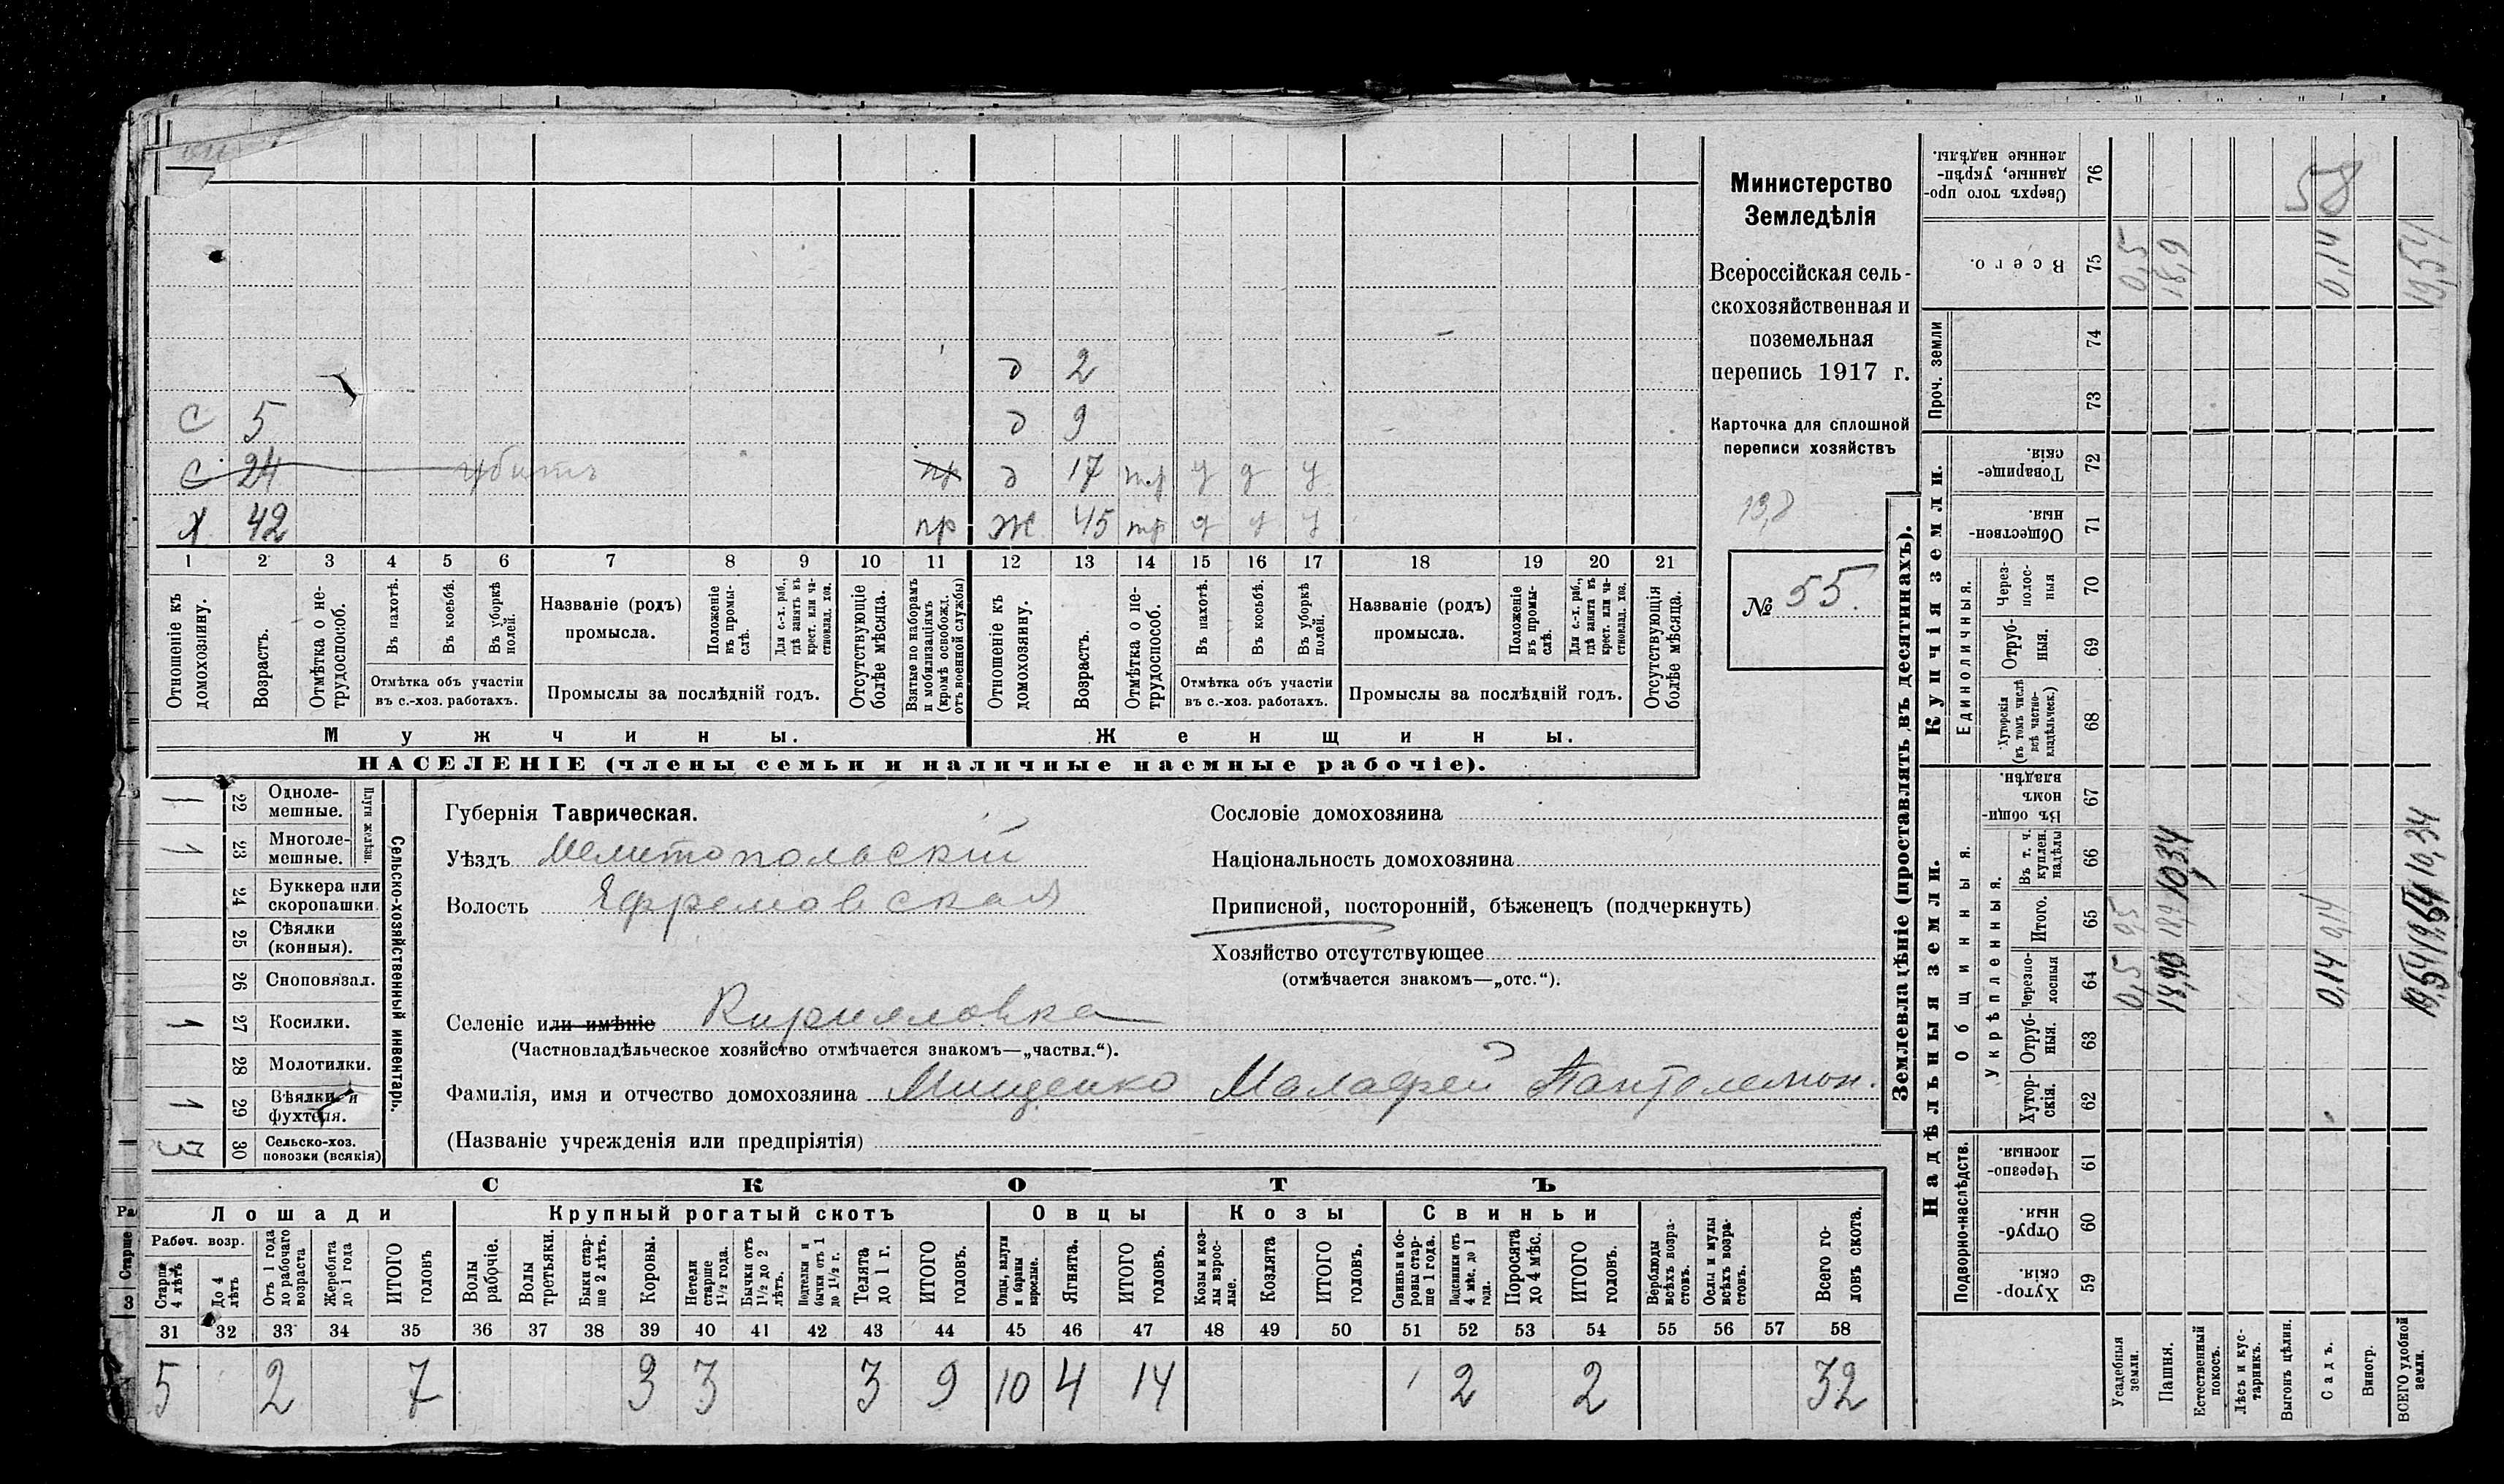 Министерство
Земледѣлія
Всероссійская сель-
скохозяйственная и
поземельная
перепись 1917 г.
Карточка для сплошной
переписи хозяйствъ
13,8
№ 55.
д 2
С 5 д 9
С 24 убитъ пр д 17 тр у д у
Х 42 пр Ж 45 тр д д у
1 2 3 4 5 6 7 8 9 10 11 12 13 14 15 16 17 18 19 20 21
Отношеніе къ домохозяину.
Возрастъ.
Отмѣтка о не-трудоспособ.
Въ пахотѣ.
Въ косьбѣ.
Въ уборкѣ полей.
Отмѣтка объ участіи
въ с.-хоз. работахъ.
Названіе (родъ)
промысла.
Положеніе въ промы-слѣ.
Для с.-х. раб., гдѣ занятъ въ крест. или ча-стновлад. хоз.
Промыслы за послѣдній годъ.
Отсутствующіе болѣе мѣсяца.
Взятые по наборамъ и мобилизаціямъ (кромѣ освобожд. отъ военной службы)
Отношеніе къ домохозяину.
Возрастъ.
Отмѣтка о не-трудоспособ.
Въ пахотѣ.
Въ косьбѣ.
Въ уборкѣ полей.
Отмѣтка объ участіи
въ с.-хоз. работахъ.
Названіе (родъ)
промысла.
Положеніе въ промы-слѣ.
Для с.-х. раб., гдѣ занята въ крест. или ча-стновлад. хоз.
Промыслы за послѣдній годъ.
Отсутствующія болѣе мѣсяца.
Мужчины. Женщины.
НАСЕЛЕНІЕ (члены семьи и наличные наемные рабочіе).
1 22 Одноле-мешные.
1 23 Многоле-мешные.
Плуги желѣзн.
24 Буккера или скоропашки
25 Сѣялки (конныя).
26 Сноповязал.
1 27 Косилки.
28 Молотилки.
1 29 Вѣялки и фухтеля.
3 30 Сельско-хоз. повозки (всякія)
Сельско-хозяйственный инвентарь.
Губернія Таврическая.
Уѣздъ Мелитопольскій
Волость Ефремовская
Селеніе или имѣніе Кирилловка
(Частновладѣльческое хозяйство отмѣчается знакомъ—„частвл.“).
Фамилія, имя и отчество домохозяина Мищенко Малафей Пантелемон.
(Названіе учрежденія или предпріятія)
Сословіе домохозяина
Національность домохозяина
Приписной, посторонній, бѣженецъ (подчеркнуть)
Хозяйство отсутствующее
(отмѣчается знакомъ—„отс.“).
СКОТЪ
Лошади Крупный рогатый скотъ Овцы Козы Свиньи
Рабоч. возр.
Старше 4 лѣтъ
До 4 лѣтъ
Отъ 1 года до рабочаго возраста
Жеребята до 1 года
ИТОГО головъ
Волы рабочіе.
Волы третьяки.
Быки стар-ше 2 лѣтъ.
Коровы.
Нетели старше 1½ года.
Бычки отъ 1½ до 2 лѣтъ.
Подтелки и бычки отъ 1 до 1½ г.
Телята до 1 г.
ИТОГО головъ.
Овцы, валухи и бараны взрослые.
Ягнята.
ИТОГО головъ.
Козы и коз-лы взрос-лые.
Козлята
ИТОГО головъ.
Свиньи и бо-ровы стар-ше 1 года.
Подсвинки отъ 4 мѣс. до 1 года.
Поросята до 4 мѣс.
ИТОГО головъ.
Верблюды всѣхъ возра-стовъ.
Ослы и мулы всѣхъ возра-стовъ.
Всего го-ловъ скота.
31 32 33 34 35 36 37 38 39 40 41 42 43 44 45 46 47 48 49 50 51 52 53 54 55 56 57 58
5 2 7 3 3 3 9 10 4 14 2 2 32
Землевладѣніе (проставлять въ десятинахъ).
Надѣльныя земли. Купчія земли.
Подворно-наслѣдств.
Общинныя.
Укрѣпленныя.
Единоличныя.
Проч. земли
Хутор-скія. 59
Отруб-ныя. 60
Черезпо-лосныя. 61
Хутор-скія. 62
Отруб-ныя. 63
Черезпо-лосныя 64
Итого. 65
Въ т. ч. куплен. надѣлы 66
Въ общин-номъ владѣн. 67
Хуторскія (въ томъ числѣ всѣ частно-владѣльческ.) 68
Отруб-ныя. 69
Черезполос-ныя 70
Обществен-ныя. 71
Товарище-скія. 72
73
74
Всего. 75
Сверхъ того про-данные, укрѣп-ленные надѣлы. 76
Усадебныя земли. 0,5 0,5
Пашня. 18,90 10,34 18,9
Естественный покосъ.
Лѣсъ и кус-тарникъ.
Выгонъ цѣлин.
Садъ. 0,14 0,14 0,14
Виногр.
ВСЕГО удобной земли. 19,54 10,34 19,54
58